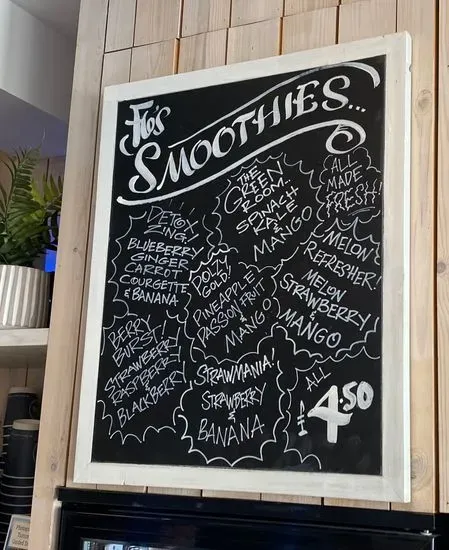 Flo's
SMOOTHIES...
ALL
MADE
FRESH!
THE
GREEN
ROOM.
SPINACH
KALE &
MANGO
DETOX
ZING.
BLUEBERRY
GINGER
CARROT
COURGETTE
& BANANA
POLLY
GOLD!
PINEAPPLE
PASSION FRUIT
&
MANGO
MELON
REFRESHER!
MELON
STRAWBERRY
&
MANGO
BERRY
BURST!
STRAWBERRY
RASPBERRY
&
BLACKBERRY
STRAWMANIA!
STRAWBERRY
&
BANANA
ALL
£4.50